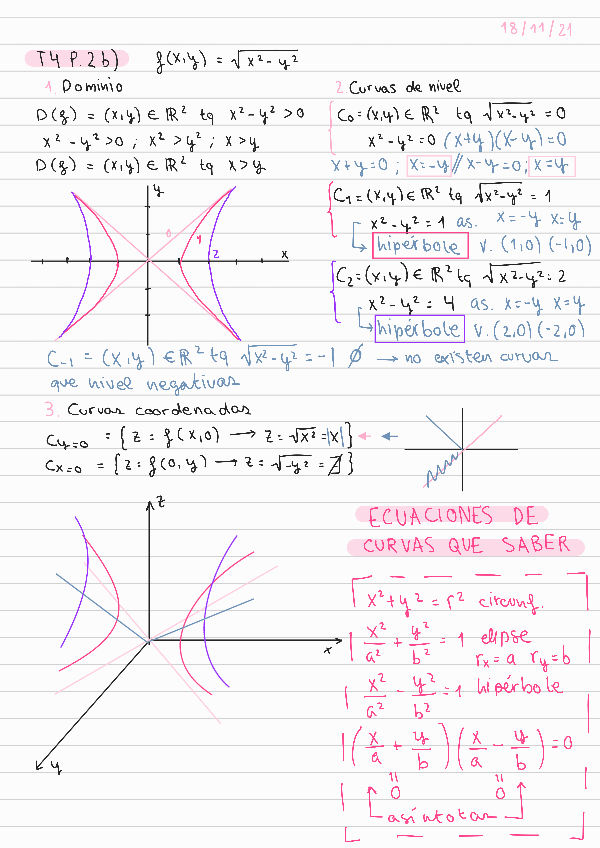 18/11/21
T4 P.2b) f(x,y) = √x²-y²
1. Dominio
D(f) = (x,y) ∈ ℝ² tq x²-y² > 0
x² - y² > 0 ; x² > y² ; x > y
D(f) = (x,y) ∈ ℝ² tq x > y
y
0
1
2
x
2. Curvas de nivel
C₀ = (x,y) ∈ ℝ² tq √x²-y² = 0
x² - y² = 0 (x+y)(x-y) = 0
x+y = 0 ; x=-y // x-y = 0 ; x=y
C₁ = (x,y) ∈ ℝ² tq √x²-y² = 1
x² - y² = 1 as. x=-y x=y
hipérbole v. (1,0) (-1,0)
C₂ = (x,y) ∈ ℝ² tq √x²-y² = 2
x² - y² = 4 as. x=-y x=y
hipérbole v. (2,0) (-2,0)
C₋₁ = (x,y) ∈ ℝ² tq √x²-y² = -1 ∅ → no existen curvas
que nivel negativas
3. Curvas coordenadas
Cy=0 = {z = f(x,0) → z = √x² = |x|} ← ←
Cx=0 = {z = f(0,y) → z = √-y² = ∄}
z
x
y
ECUACIONES DE
CURVAS QUE SABER
x² + y² = r² circunf.
x²/a² + y²/b² = 1 elipse
rx = a ry = b
x²/a² - y²/b² = 1 hipérbole
(x/a + y/b)(x/a - y/b) = 0
= =
0 0
asíntotas